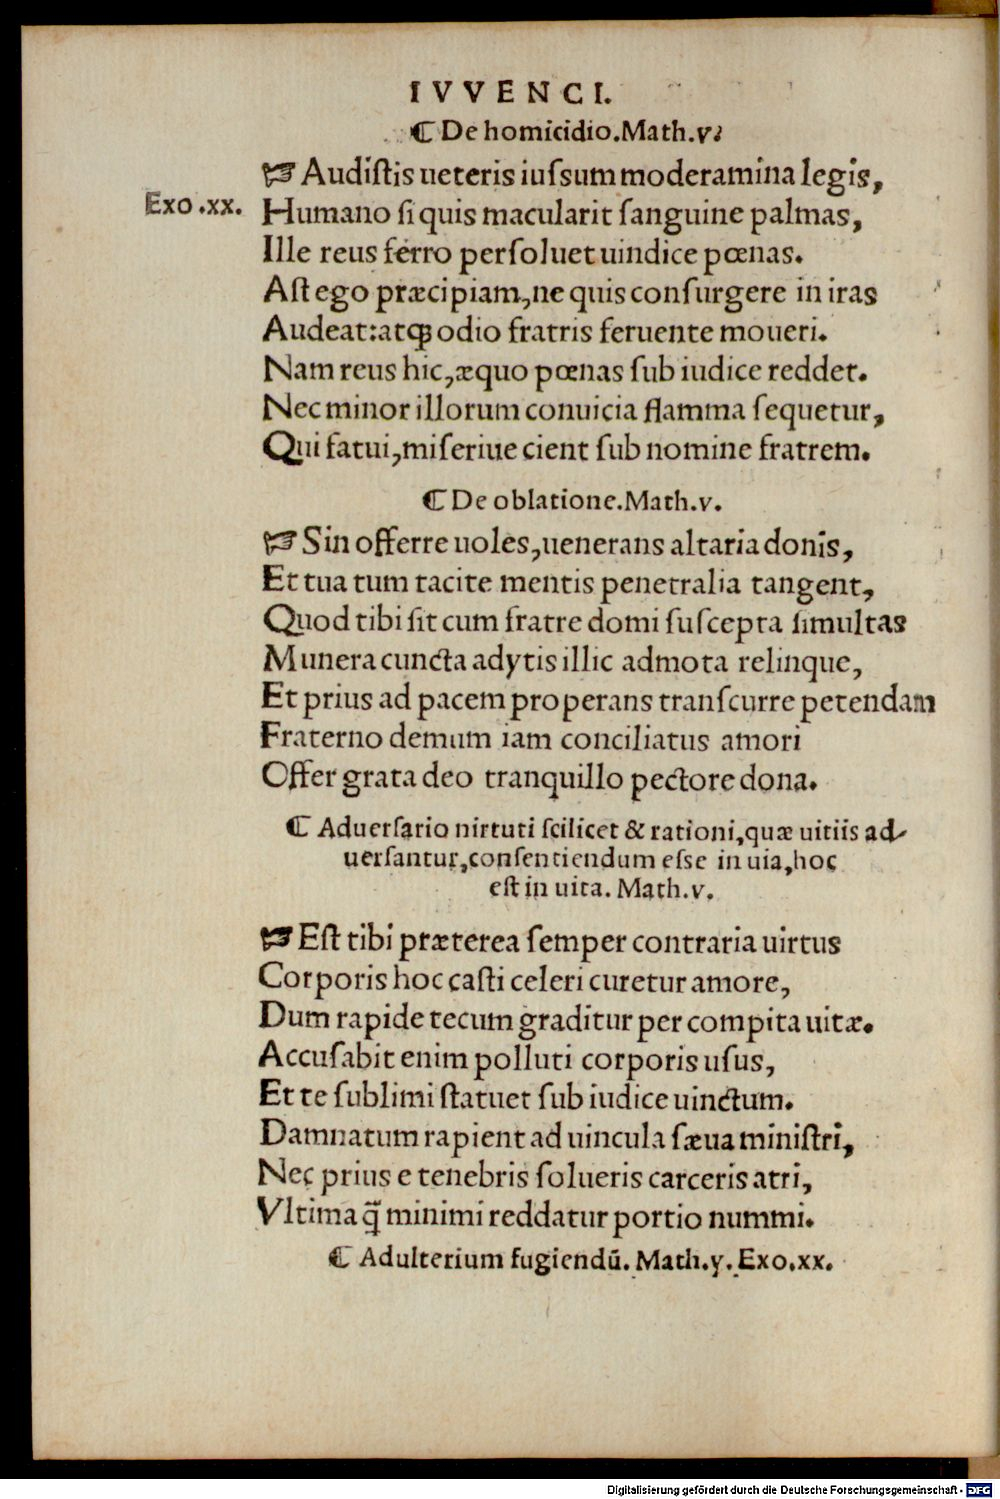 IVVENCI.
⸿ De homicidio. Math.v.
☞ Audiſtis ueteris iuſsum moderamina legis,
Exo.xx.
Humano ſi quis macularit ſanguine palmas,
Ille reus ferro perſoluet uindice pœnas.
Aſt ego præcipiam, ne quis conſurgere in iras
Audeat: atqꝫ odio fratris feruente moueri.
Nam reus hic, æquo pœnas ſub iudice reddet.
Nec minor illorum conuicia flamma ſequetur,
Qui fatui, miſeriue cient ſub nomine fratrem.
⸿ De oblatione. Math.v.
☞ Sin offerre uoles, uenerans altaria donis,
Et tua tum tacite mentis penetralia tangent,
Quod tibi ſit cum fratre domi ſuſcepta ſimultas
Munera cuncta adytis illic admota relinque,
Et prius ad pacem properans tranſcurre petendam
Fraterno demum iam conciliatus amori
Offer grata deo tranquillo pectore dona.
⸿ Aduerſario nirtuti ſcilicet & rationi, quæ uitiis ad-
uerſantur, conſentiendum eſſe in uia, hoc
eſt in uita. Math.v.
☞ Eſt tibi præterea ſemper contraria uirtus
Corporis hoc caſti celeri curetur amore,
Dum rapide tecum graditur per compita uitæ.
Accuſabit enim polluti corporis uſus,
Et te ſublimi ſtatuet ſub iudice uinctum.
Damnatum rapient ad uincula ſæua miniſtri,
Nec prius e tenebris ſolueris carceris atri,
Vltima q̃ minimi reddatur portio nummi.
⸿ Adulterium fugiendũ. Math.v. Exo.xx.
Digitalisierung gefördert durch die Deutsche Forschungsgemeinschaft - DFG